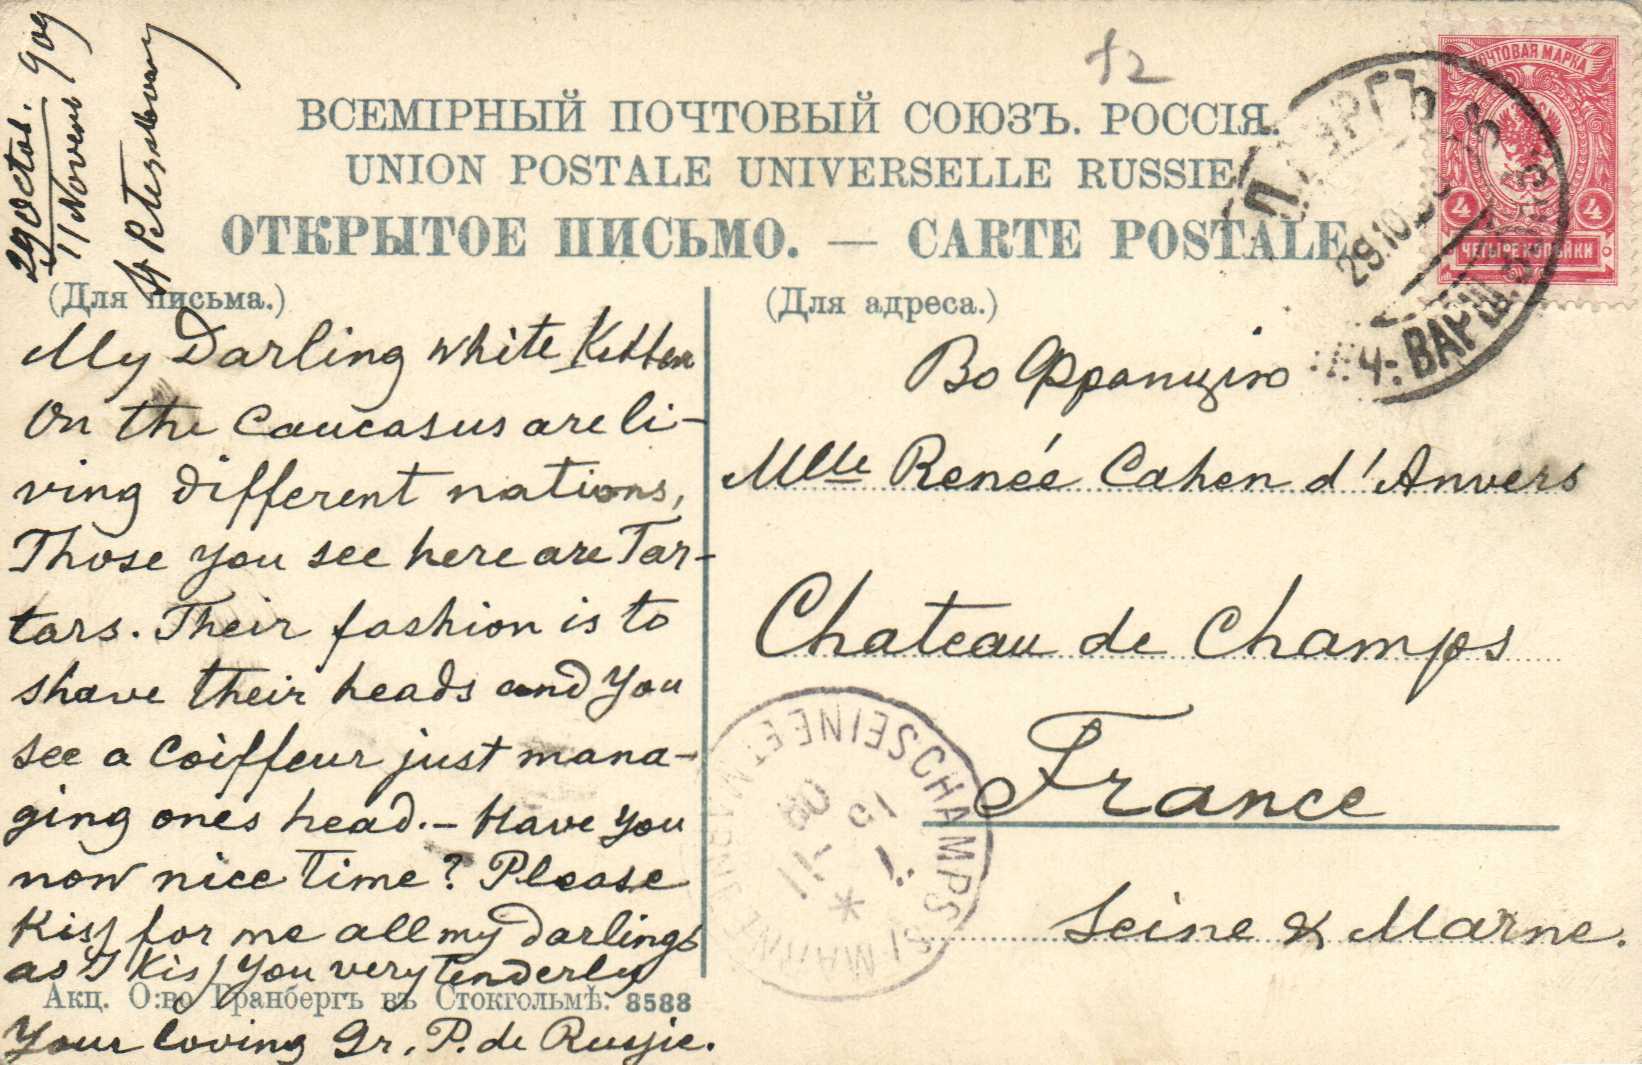 29 Octob. 909
11 Novemb
St Petersbourg
12
ВСЕМІРНЫЙ ПОЧТОВЫЙ СОЮЗЪ. РОССІЯ.
UNION POSTALE UNIVERSELLE RUSSIE
ОТКРЫТОЕ ПИСЬМО. — CARTE POSTALE
ПОЧТОВАЯ МАРКА
4 4
ЧЕТЫРЕ КОПѢЙКИ
29.10
ВАРШ.
(Для письма.)
(Для адреса.)
My Darling white Kitten
On the Caucasus are li-
ving different nations,
Those you see here are Tar-
tars. Their fashion is to
shave their heads and you
see a Coiffeur just mana-
ging ones head.- Have you
now nice time? Please
Kiss for me all my darlings
as I Kiss you very tenderly
Your loving Gr. P. de Russie.
Во Францію
Mlle Renée Cahen d'Anvers
Chateau de Champs
France
Seine & Marne.
CHAMPS S/ MARNE
SEINE ET MARNE
Акц. О:во Гранбергъ въ Стокгольмѣ. 8588